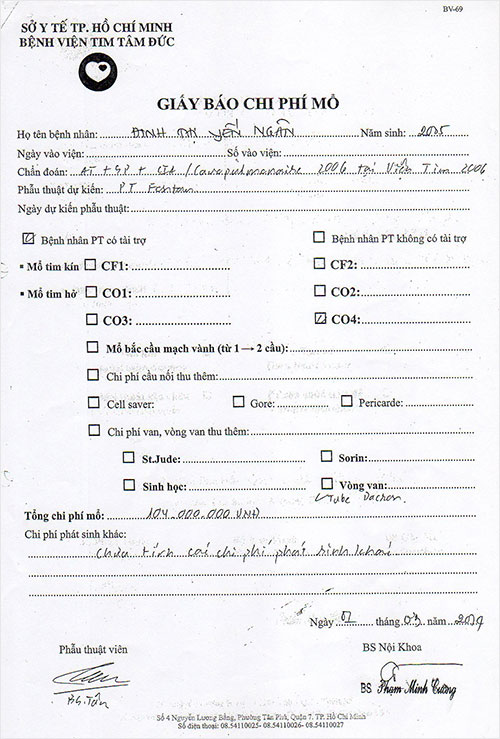 BV-69
SỞ Y TẾ TP. HỒ CHÍ MINH
BỆNH VIỆN TIM TÂM ĐỨC
GIẤY BÁO CHI PHÍ MỔ
Họ tên bệnh nhân: ĐINH THỊ YẾN NGÂN Năm sinh: 2005
Ngày vào viện: Số vào viện:
Chẩn đoán: AT + SP + CIA / Cavopulmonaire 2006 tại Viện Tim 2006
Phẫu thuật dự kiến: PT Fontan
Ngày dự kiến phẫu thuật:
Bệnh nhân PT có tài trợ Bệnh nhân PT không có tài trợ
▪ Mổ tim kín CF1: CF2:
▪ Mổ tim hở CO1: CO2:
CO3: CO4:
Mổ bắc cầu mạch vành (từ 1 → 2 cầu):
Chi phí cầu nối thu thêm:
Cell saver: Gore: Pericarde:
Chi phí van, vòng van thu thêm:
St.Jude: Sorin:
Sinh học: Vòng van:
Tube Dacron
Tổng chi phí mổ: 104.000.000 VNĐ
Chi phí phát sinh khác:
Chưa tính các chi phí phát sinh khác
Ngày tháng 03 năm
Phẫu thuật viên BS Nội Khoa
BS. Tân BS Phạm Minh Cương
Số 4 Nguyễn Lương Bằng, Phường Tân Phú, Quận 7. TP. Hồ Chí Minh
Số điện thoại: 08.54110025- 08.54110026- 08.54110027